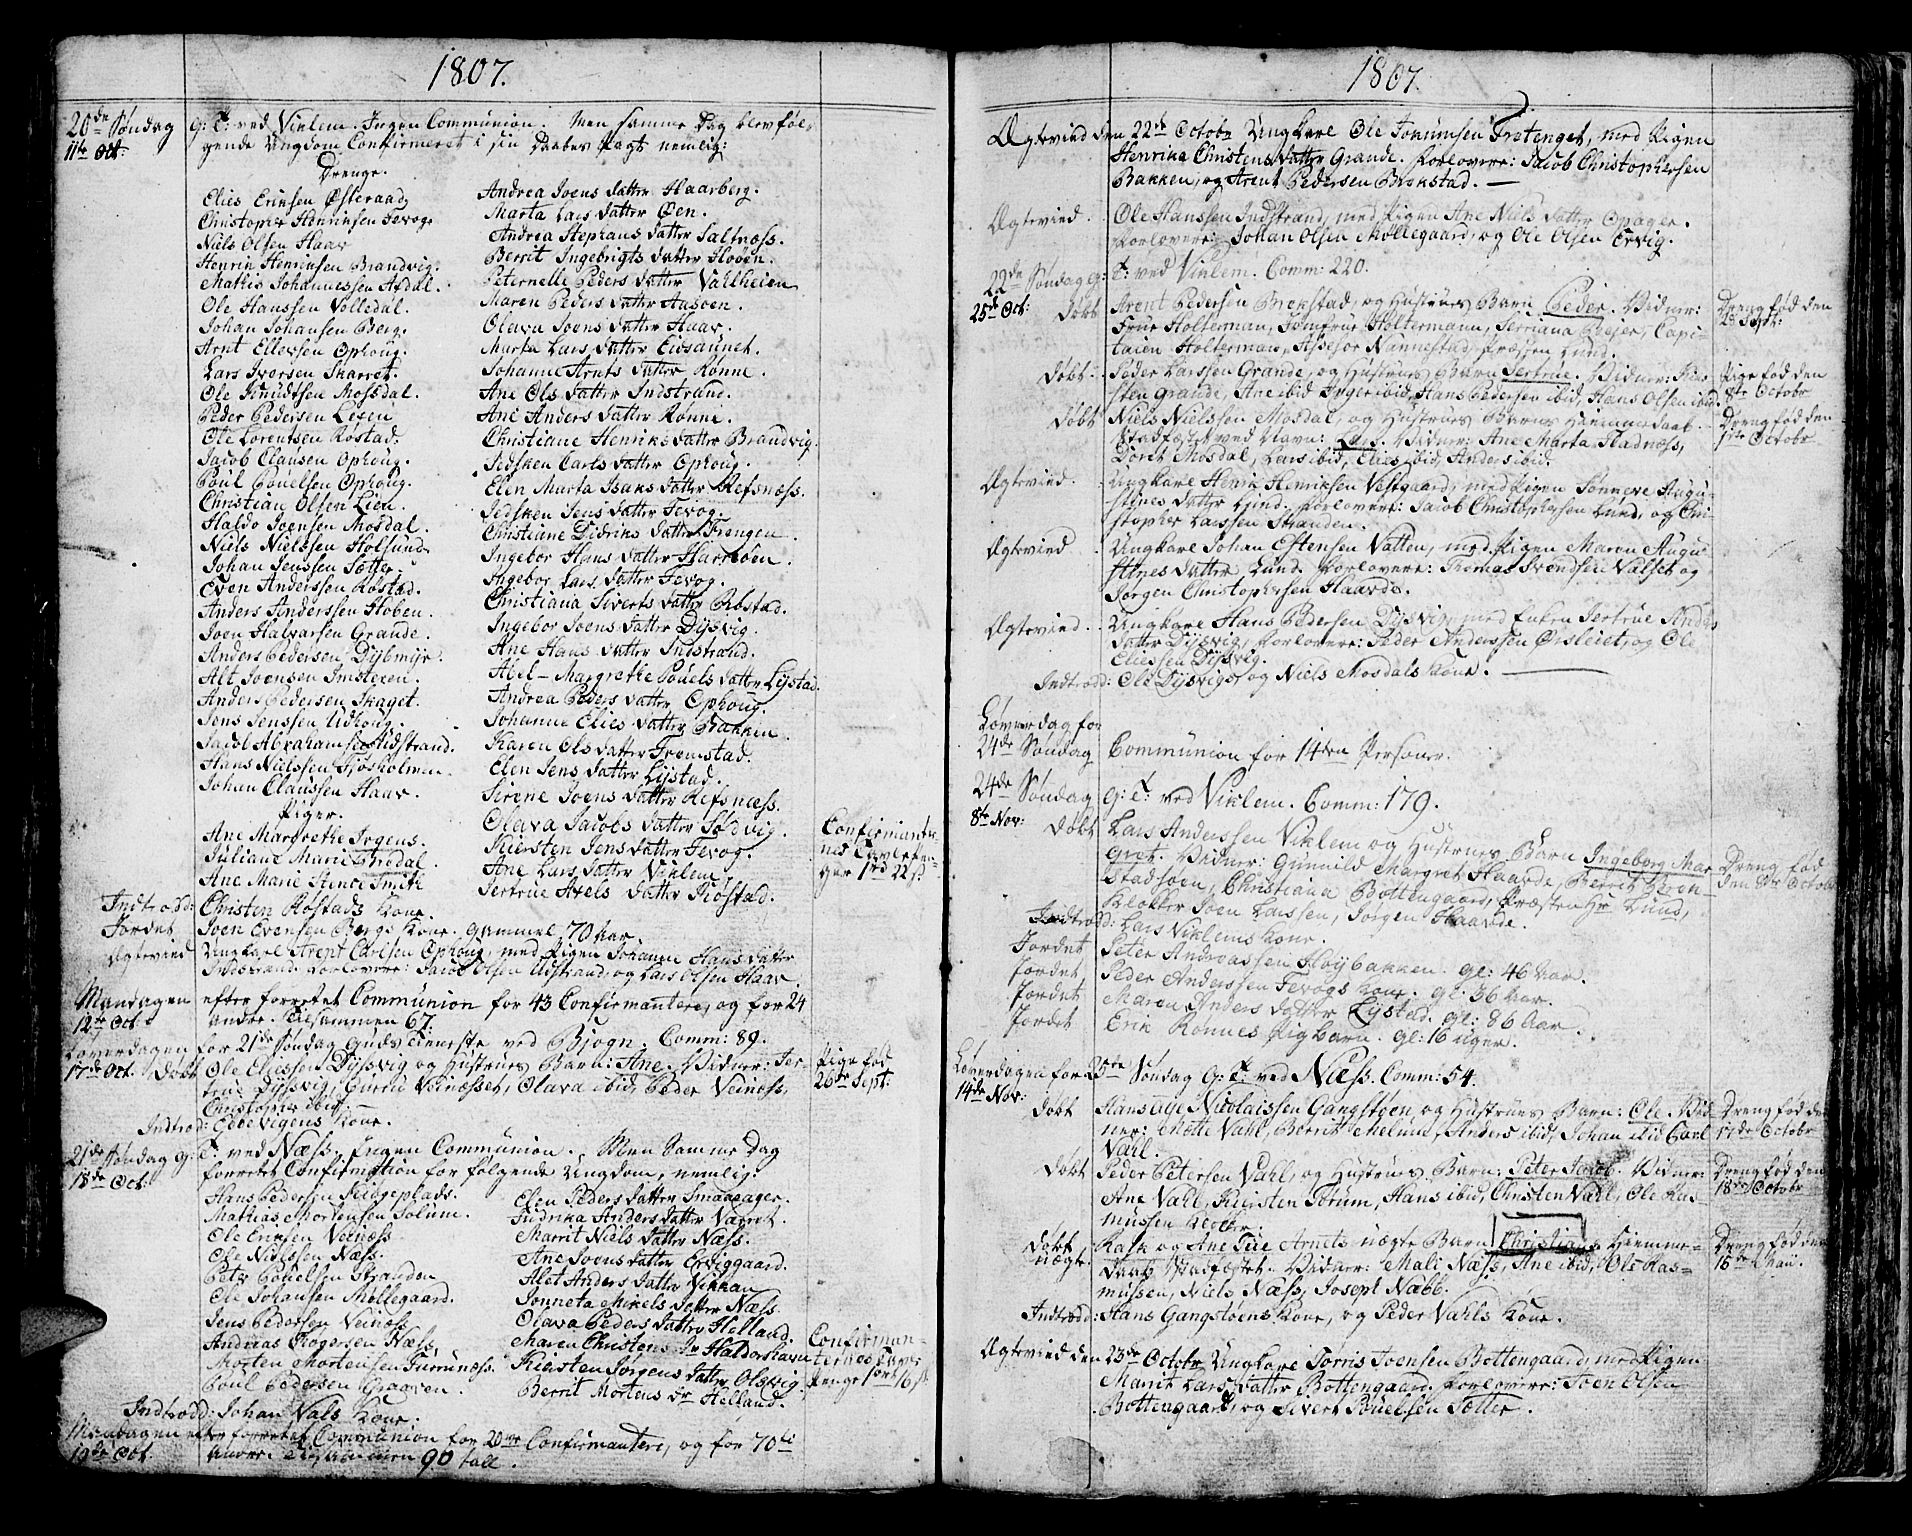 1807.
20de Søndag g: T: ved Viklem. Ingen Communion. Men samme Dag blev føl-
11te Oct: gende Ungdom Confirmeret i sin Daabes Pagt nemlig:
Drenge.
Elies Eriksen Østeraad
Christopher Henriksen Fevog
Niels Olsen Haar
Henrik Henriksen Brandvig.
Mattis Johannessen Asdal.
Ole Hanssen Volledal.
Johan Johansen Berg.
Arnt Ellevsen Ophoug.
Lars Iversen Skarret.
Ole Knudtsen Mossdal.
Peder Pedersen Lexen
Ole Lorentsen Røstad.
Jacob Clausen Ophoug.
Poul Pouelsen Ophoug.
Christian Olsen Lien.
Haldo Joensen Mosdal.
Niels Nielssen Holsund.
Johan Jenssen Sætter.
Even Anderssen Røstad.
Anders Anderssen Hoben.
Joen Halvarsen Grande.
Anders Pedersen Dybmyr.
Alt Joensen Imsteren.
Anders Pedersen Skaget.
Jens Jenssen Udhoug.
Jacob Abrahamsen Udstrand.
Hans Nielssen Fiosholmen
Johan Claussen Haar.
Piger.
Ane Margrethe Irgens.
Juliane Marie Aredal
Ane Marie Stence Smith
Andrea Joens Datter Haarberg.
Marta Lars Datter Øen.
Andrea Stephans Datter Saltnæss.
Berrit Ingebrigts Datter Hoøen.
Peternelle Peders Datter Vahlheien
Maren Peders Datter Aasoen.
Olava Joens Datter Haar.
Marta Lars Datter Eidsaunet.
Johanne Arnts Datter Rønne.
Ane Ols Datter Indstrand.
Ane Anders Datter Rønne.
Christiane Henriks Datter Brandvig.
Sidsken Carls Datter Ophoug.
Elen Marta Isaks Datter Refsnæss.
Sidsken Jens Datter Fevog.
Christiane Didriks Datter Frengen.
Ingebor Hans Datter Harreben.
Ingebor Lars Datter Fevog.
Christiana Siverts Datter Ribstad.
Ingebor Joens Datter Dysvig.
Ane Hans Datter Indstrand.
Abel-Margrethe Pouels Datter Lystad.
Andrea Peders Datter Ophoug.
Johanne Elies Datter Bakken.
Karen Ols Datter Tromstad.
Elen Jens Datter Lystad.
Sirene Joens Datter Refsnæss.
Olava Jacobs Datter Sødvig.
Kiersten Jens Datter Fevog.
Ane Lars Datter Viklem.
Sertrue Axels Datter Røstad.
Confirmanter-
nes Tavlepen-
ger 1rd 22ß
Indtræd: Christen Røstads Kone.
Jordet Joen Evensen Bergs Kone. gammel 70 Aar.
Ægteviid Ungkarl Arent Carlsen Ophoug, med Pigen Johanne Hans Datter
Indstrand. Forlovere: Jacob Olsen Udstrand, og Lars Olsen Haar.
Mandagen efter forretet Communion for 43 Confirmantere, og for 24
12te Oct. andre. Tilsammen 67.
Løverdagen for 21de Søndag Guds Tieneste ved Biogn. Comm: 89.
17de Oct. Døbt Ole Eliessen Dysvig og Hustrues Barn: Ane. Vidner: Ser-
true Dysvig, Guru Veinæsset, Olava ibid, Peder Veinæss,
Christopher ibid.
Pige fød
26de Sept:
Indtræd: Edbevigens Kone.
21de Søndag g: T. ved Næss. Ingen Communion. Men Samme Dag
18de Oct. forretet Confirmation for følgende Ungdom, nemlig.
Hans Pedersen Ridgeplads.
Mathias Mortensen Solum.
Ole Eriksen Veinæss
Ole Nielssen Næss.
Petr Pouelsen Stranden
Ole Johansen Møllegaard.
Jens Pedersen Veinæss
Andreas Rogersen Næss.
Morten Mortensen Furunæss.
Poul Pedersen Graaven.
Elen Peders Datter Smaaeager.
Fudrika Anders Datter Varret.
Marrit Niels Datter Næss.
Ane Joens Datter Erviggaard.
Alet Anders Datter Vikkan
Jonneta Mikels Datter Næss.
Olava Peders Datter Helland.
Maren Christens Dr Haldorshavn
Kiersten Jørgens Datter Olsvig.
Berrit Mortens Dr Helland.
Confirman-
ternes Tavle-
Penge 1ort 16 ß
Indtrædd: Johan Vals Kone.
Mandagen efter forretet Communion for 20ve Confirmantere, og for 70ti
19de Oct. Andre. Tilsammen 90 tall.
1807.
Ægteviid den 22de Octobr Ungkarl Ole Jonumsen Tretenget, med Pigen
Henrika Christens Datter Grande. Forlovere: Jacob Christophersen
Bakken, og Arent Pedersen Brekstad.
Ægteviid. Ole Hanssen Indstrand, med Pigen Ane Niels Datter Opager.
Forlovere: Johan Olsen Møllegaard, og Ole Olsen Ervig.
22de Søndag g: T: ved Viklem. Comm: 220.
25de Oct: Døbt Arent Pedersen Brekstad, og Hustrues Barn Peder. Vidner:
Frue Holterman, Jomfrue Holtermann, Serriana Bejer, Capi-
taien Holterman, Assesor Nannestad, Præsten Lund.
Dreng fød den
28 Sept:
Døbt. Peder Larssen Grande, og Hustrues Barn Sertrue. Vidner: Kier-
sten Grande, Ane ibid, Inger ibid, Hans Pedersen ibid, Hans Olsen ibid.
Pige fød den
8de Octobr
Døbt Niels Nielssen Mosdal, og Hustrues Barns Hiemme Daab
Stadfæstet ved Navn: Lars. Vidner: Ane Marta Hadnæss,
Doret Mosdal, Lars ibid, Elies ibid, Anders ibid.
Dreng fød den
1ste Octobr
Ægteviid. Ungkarl Henrik Henriksen Vestgaard, med Pigen Sønneve Augu-
stines Datter Hind. Forlovere: Jacob Christophersen Lund, og Chri-
stopher Larssen Stranden.
Ægteviid. Ungkarl Johan Estensen Vatten, med Pigen Maren Augu-
stines Datter Lund. Forlovere: Thomas Svendsen Valset og
Jørgen Christophersen Haarde.
Ægteviid. Ungkarl Hans Pedersen Dysvig, med Enken Sertrue Anders
Datter Dysvig, Forlovere: Peder Anderssen Ørsleiet, og Ole
Eliessen Dysvig.
Indtrædd: Ole Dysvigs, og Niels Mosdals Kone.
Løverdag for
24de Søndag Communion for 14den Personer.
24de Søndag g: T: ved Viklem. Comm: 179.
8de Nov: Døbt Lars Anderssen Viklem og Hustrues Barn Ingeborg Mar-
gret. Vidner: Gunnild Margret Haarde, Berrit
Stadsøen, Christiana Bottengaard, Præsten Hr Lund,
Klokker Joen Larssen, Jørgen Haarde.
Dreng fød
den 8de Octobr
Indtrædd: Lars Viklems Kone.
Jordet Peter Andreassen Høybakken. gl: 46 Aar.
Jordet Peder Anderssen Fevogs Kone. gl: 36 Aar.
Jordet Maren Anders Datter Lystad. gl: 86 Aar.
Jordet Erik Rønnes Pigbarn. gl: 16 uger.
Løverdagen for 25de Søndag G: T: ved Næss. Comm: 54.
14de Nov: Døbt Hans Nicolaissen Gangstøen, og Hustrues Barn: Ole. Vid-
ner: Mette Vahl, Berrit Melum, Anders ibid, Johan ibid Carl
Vahl.
Dreng fød den
17de Octobr
Døbt Peder Petersen Vahl, og Hustrues Barn: Peter Jacob. Vidner:
Ane Vahl, Kiersten Sørum, Hans ibid, Christen Vahl, Ole Ras-
mussen Klokker.
Dreng fød den
18de Octobr
Døbt Rask og Ane Tue Arnets uægte Barn Christian Hiemme-
uægte. Daab Stadfæstet. Vidner: Mali Næss, Ane ibid, Ole Ras-
mussen, Niels Næss, Joseph Næbb.
Dreng fød den
15de Maii.
Indtrædd: Hans Gangstøens Kone, og Peder Vahls Kone.
Ægteviid den 23de Octobr Ungkarl Torris Joensen Bottengaard, med Pigen
Marit Lars Datter Bottengaard. Forlovere: Joen Olsen
Bottengaard, og Sivert Pouelsen Sætter.